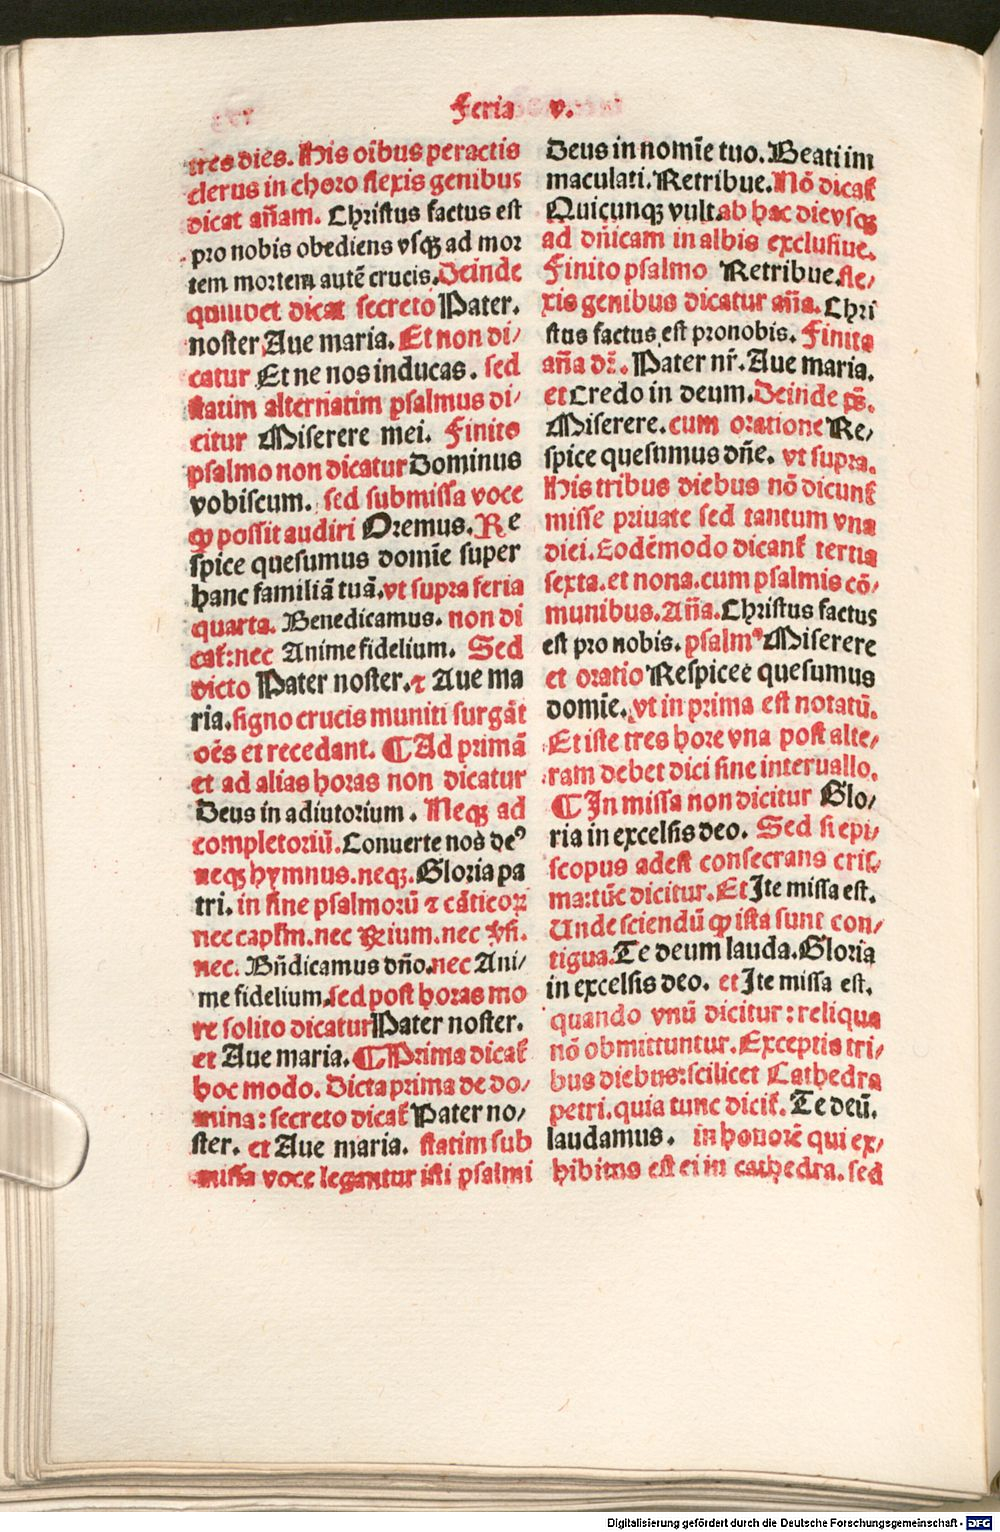 Feria v.
tres dies. His oībus peractis
clerus in choro flexis genibus
dicat añam. Christus factus est
pro nobis obediens vsqꝫ ad mor
tem mortem autē crucis. Deinde
quilibet dicat secreto Pater.
noster Aue maria. Et non di/
catur Et ne nos inducas. sed
statim alternatim psalmus di/
citur Miserere mei. Finito
psalmo non dicatur Dominus
vobiscum. sed submissa voce
ꝙ possit audiri Oremus. Re
spice quesumus domīe super
hanc familiā tuā. vt supra feria
quarta. Benedicamus. non di
cat̄: nec Anime fidelium. Sed
dicto Pater noster. ⁊ Aue ma
ria. signo crucis muniti surgāt
oēs et recedant. ¶ Ad primā
et ad alias horas non dicatur
Deus in adiutorium. Neqꝫ ad
completoriū. Conuerte nos deꝰ
neqꝫ hymnus. neqꝫ. Gloria pa
tri. in fine psalmorū ⁊ cāticoꝝ
nec capl'm. nec ℟ium. nec ℣si.
nec. Bñdicamus dño. nec Ani/
me fidelium. sed post horas mo
re solito dicatur Pater noster.
et Aue maria. ¶ Prima dicat̄
hoc modo. Dicta prima de do/
mina: secreto dicat̄ Pater no/
ster. et Aue maria. statim sub
missa voce legantur isti psalmi
Deus in nomīe tuo. Beati im
maculati. Retribue. Nō dicat̄
Quicunqꝫ vult. ab hac die vsqꝫ
ad dñicam in albis exclusiue.
Finito psalmo Retribue. fle/
xis genibus dicatur aña. Chri
stus factus est pro nobis. Finita
aña dr̄. Pater nr̄. Aue maria.
et Credo in deum. Deinde ps̄.
Miserere. cum oratione Re/
spice quesumus dñe. vt supra.
His tribus diebus nō dicunt̄
misse priuate sed tantum vna
diei. Eodēmodo dicant̄ tertia
sexta. et nona. cum psalmis cō/
munibus. Aña. Christus factus
est pro nobis. psalmꝰ Miserere
et oratio Respicee quesumus
domīe. vt in prima est notatū.
Et iste tres hore vna post alte/
ram debet dici sine interuallo.
¶ In missa non dicitur Glo/
ria in excelsis deo. Sed si epi/
scopus adest consecrans cris/
ma: tūc dicitur. Et Ite missa est.
Unde sciendū ꝙ ista sunt con/
tigua. Te deum lauda. Gloria
in excelsis deo. et Ite missa est.
quando vnū dicitur: reliqua
nō obmittuntur. Exceptis tri/
bus diebus: scilicet Cathedra
petri. quia tunc dicit̄. Te deū.
laudamus. in honorē qui ex/
hibitus est ei in cathedra. sed
Digitalisierung gefördert durch die Deutsche Forschungsgemeinschaft - DFG